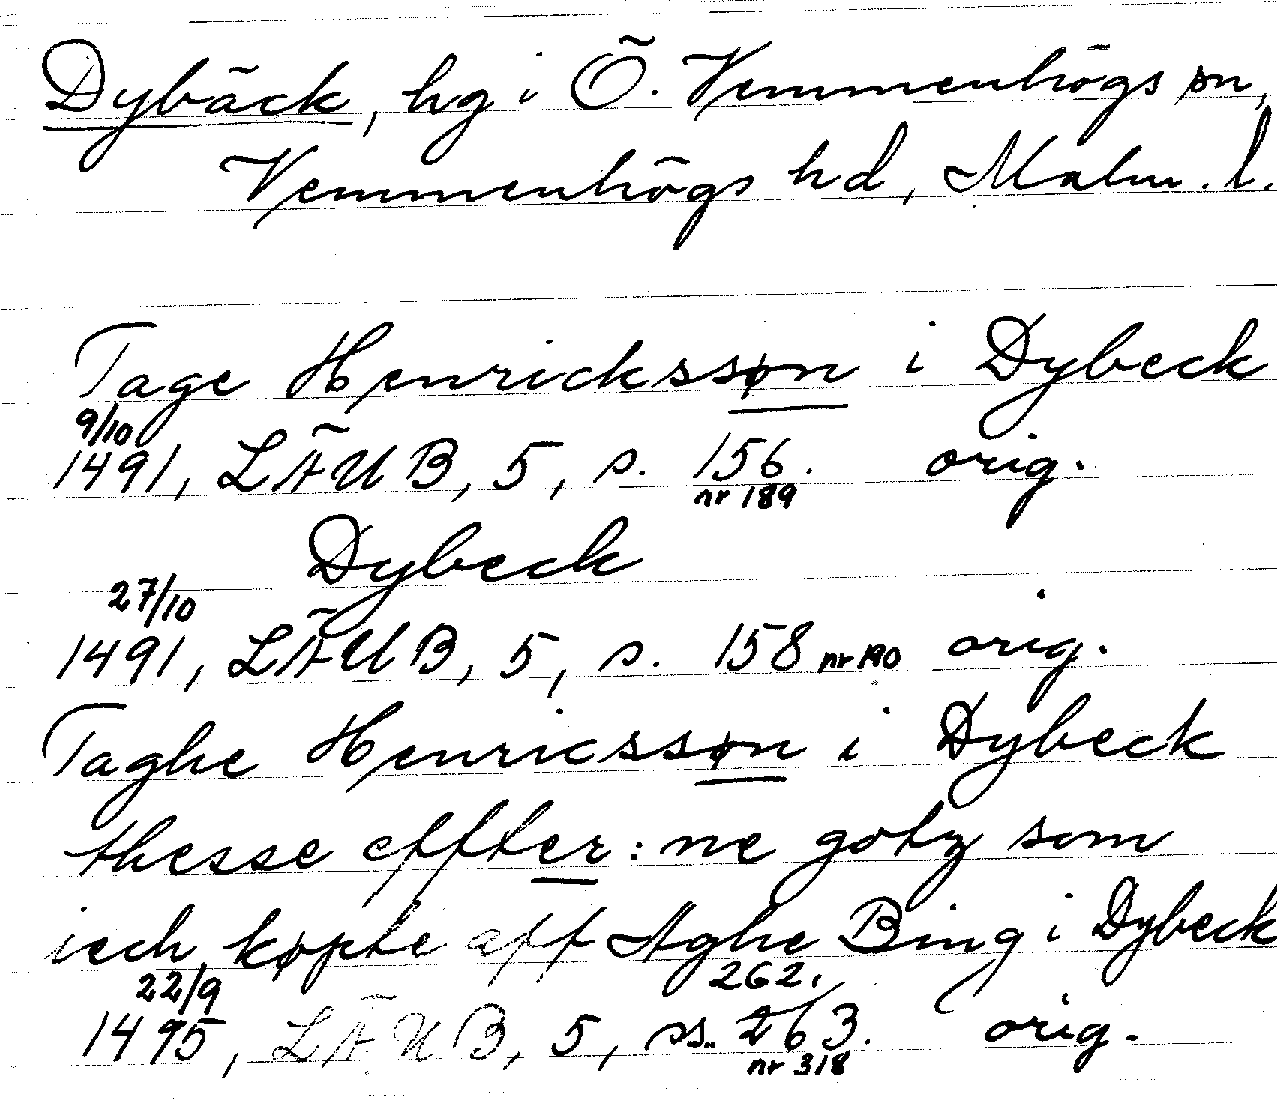 Dybäck, hg i Ö. Vemmenhögs sn,
Vemmenhögs hd, Malm. l.
Tage Henrickssøn i Dybeck
9/10
1491, LÄUB, 5, s. 156. orig.
nr 189
Dybeck
27/10
1491, LÄUB, 5, s. 158 nr 190 orig.
Taghe Henricssøn i Dybeck
thesse effter: ne gotz som
iech køpte aff Aghe Bing i Dybeck
22/9 262.
1495, LÄUB, 5, ss. 263. orig.
nr 318